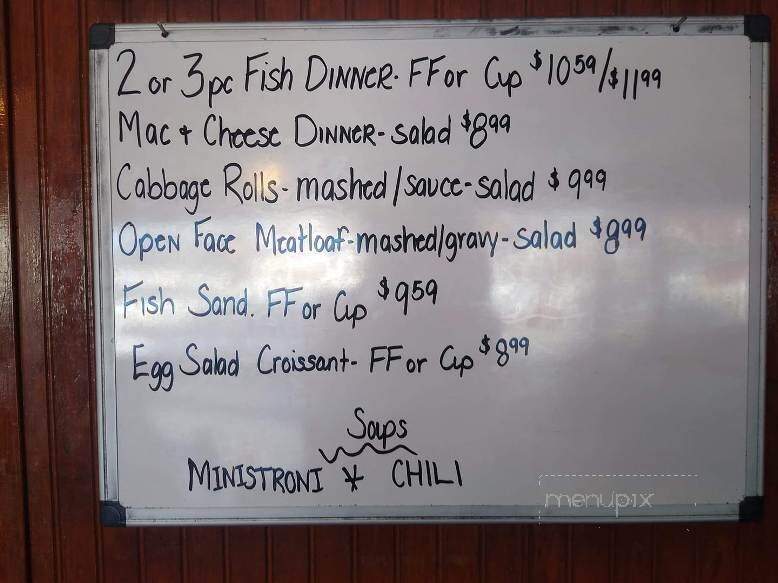 2 or 3pc Fish DINNER. FF or Cup $10.59/$11.99
Mac + Cheese DINNER - salad $8.99
Cabbage Rolls - mashed/sauce - salad $9.99
Open Face Meatloaf - mashed/gravy - salad $8.99
Fish Sand. FF or Cup $9.59
Egg Salad Croissant - FF or Cup $8.99
Soups
MINISTRONI * CHILI
menupix